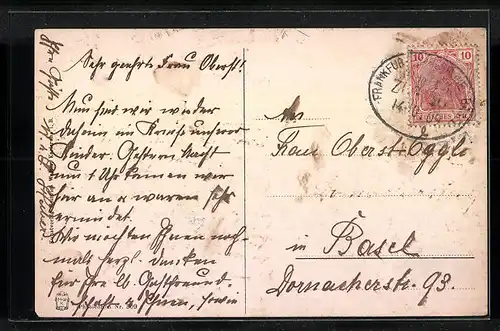 Sehr geehrte Frau Oberst!
Nun sind wir wieder
daheim im Kreise unserer
Kinder. Gestern Nacht
um 1 Uhr kamen wir
hier an & waren sehr
ermüdet.
Wir möchten Ihnen noch-
mals herzl. danken
für Ihre lb. Gastfreund-
schaft & Ihnen, sowie
An
Frau Oberst Eggli
in Basel
Dornacherstr. 93.
FRANKFURT
10 10